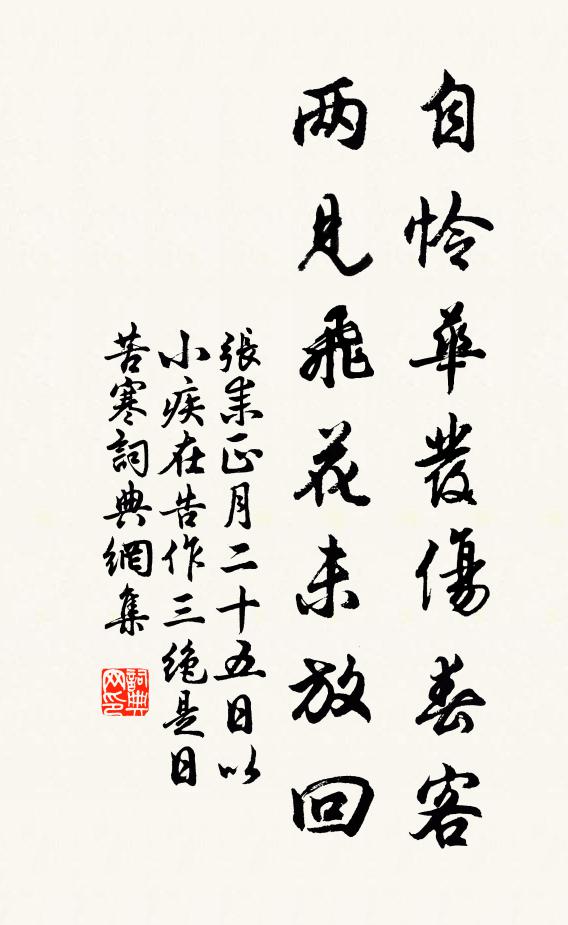 自怜華發傷春客
两見飛花未放回
張耒正月二十五日以
小疾在告作三绝是日
苦寒詞典網集
詞典
网印